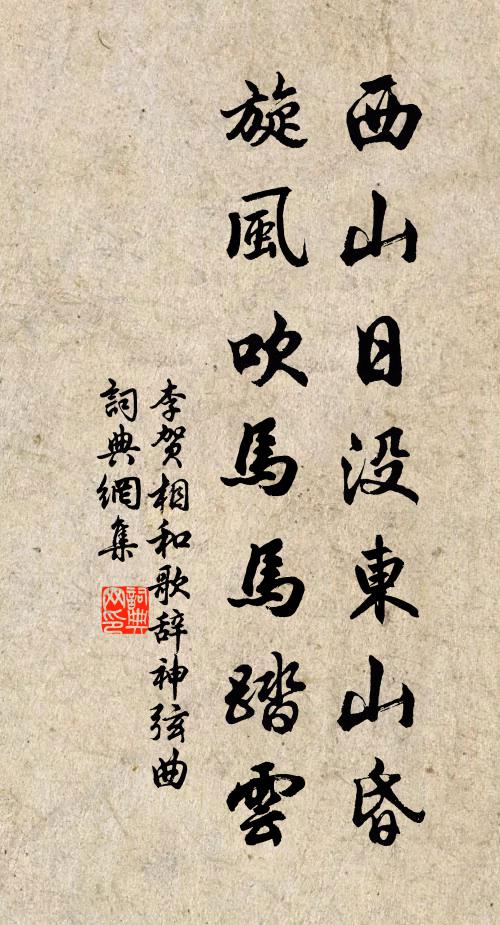 西山日没東山昏
旋風吹馬馬踏雲
李賀相和歌辞神弦曲
詞典網集
詞典
网印